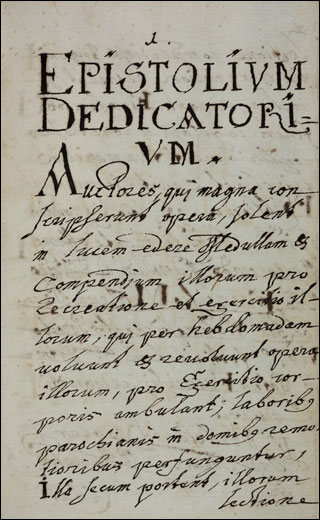 1.
EPISTOLIVM
DEDICATORI=
VM.
Auctores, qui magna con
scripserunt opera, solent
in lucem edere Medullam &
Compendium illorum pro
Recreatione et exercitio il=
lorum, qui per hebdomadam
volvunt & revolvunt opera
illorum, pro Exercitio cor=
poris ambulant; laboribꝰ
parochianis in domibꝰ remo=
tioribus perfunguntur,
illa secum portent, illorum
lectione